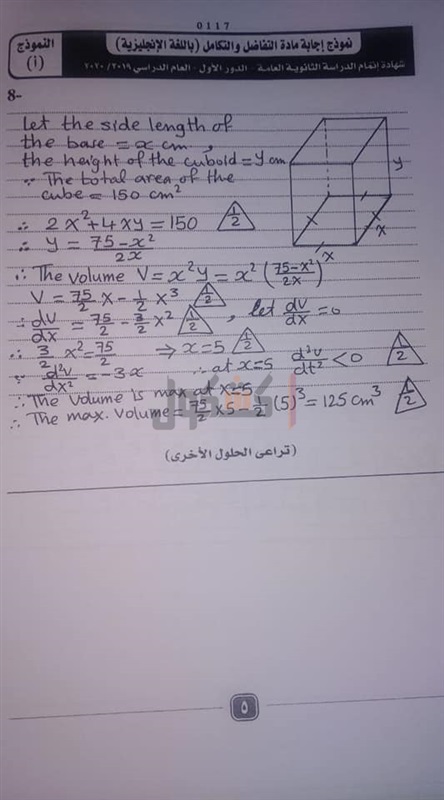 0117
نموذج إجابة مادة التفاضل والتكامل (باللغة الإنجليزية)
النموذج
(أ)
شهادة إتمام الدراسة الثانوية العامة - الدور الأول - العام الدراسي ٢٠١٩/٢٠٢٠
8-
Let the side length of
the base = x cm,
the height of the cuboid = y cm
∵ The total area of the
cube = 150 cm²
∴ 2x² + 4xy = 150 1/2
∴ y = (75-x²)/2x
∴ The volume V = x²y = x² ((75-x²)/2x)
V = 75/2 x - 1/2 x³ 1/2
∴ dv/dx = 75/2 - 3/2 x² 1/2 , let dv/dx = 0
∴ 3/2 x² = 75/2 ⇒ x = 5 1/2
∵ d²v/dx² = -3x ∴ at x=5 d²v/dt² < 0 1/2
∴ The volume is max at x=5
∴ The max. volume = 75/2 x5 - 1/2 (5)³ = 125 cm³ 1/2
y
x
x
(تراعى الحلول الأخرى)
٥